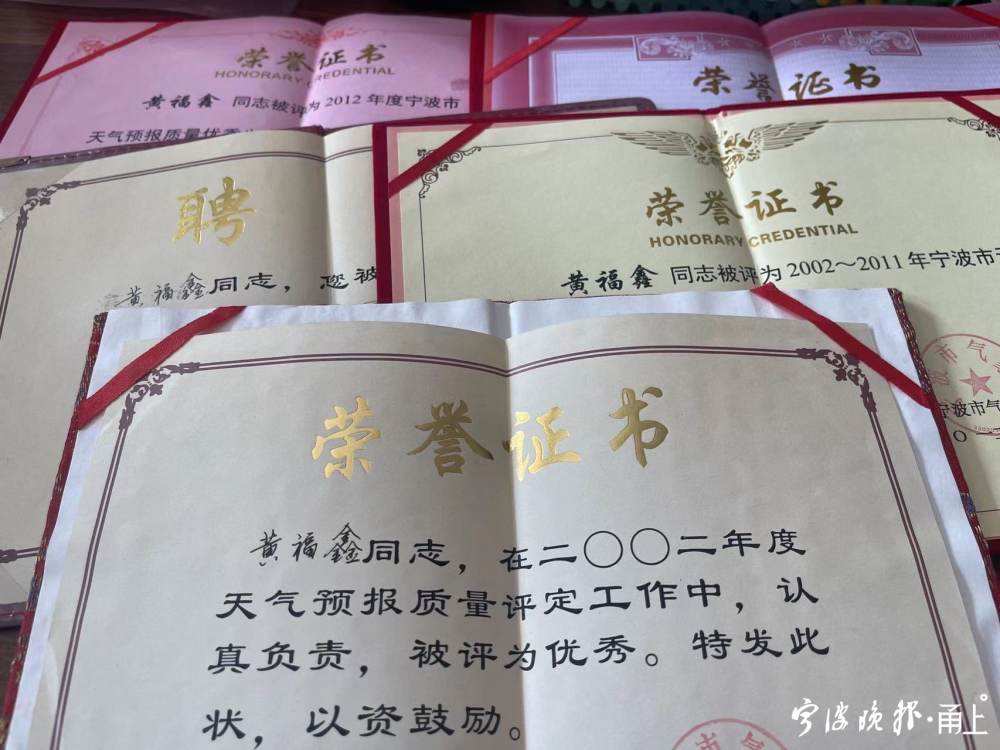 荣誉证书
HONORARY CREDENTIAL
黄福鑫 同志被评为 2012 年度宁波市
天气预报质量优秀
荣誉证书
聘
黄福鑫同志，您被
荣誉证书
HONORARY CREDENTIAL
黄福鑫 同志被评为 2002～2011 年宁波市
市气
宁波市气
荣誉证书
黄福鑫同志，在二〇〇二年度
天气预报质量评定工作中，认
真负责，被评为优秀。特发此
状，以资鼓励。
宁波晚报·甬上